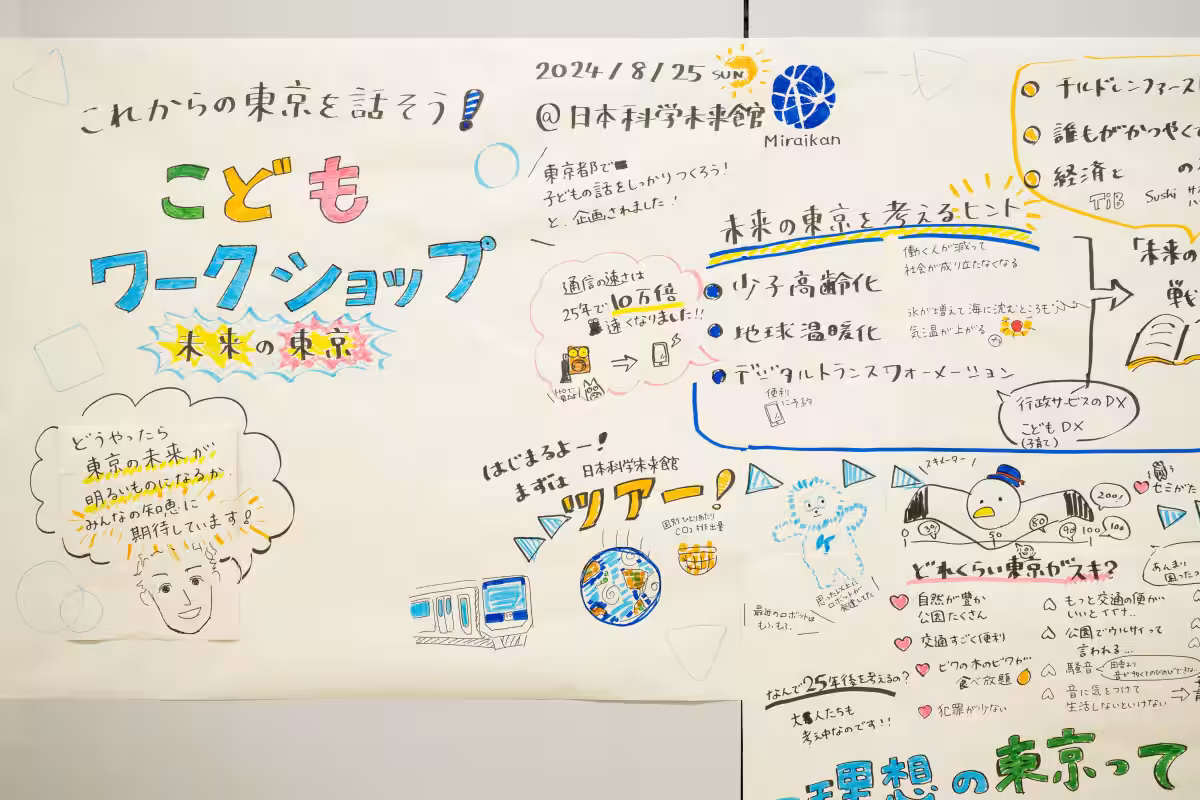 これからの東京を話そう!
こども
ワークショップ
未来の東京
どうやったら
東京の未来が
明るいものになるか.
みんなの知恵に
期待しています!
2024/8/25 SUN
@日本科学未来館
Miraikan
東京都で
子どもの話をしっかりつくろう!
と、企画されました!
通信の速さは
25年で10万倍
速くなりました!!
未来の東京を考えるヒント
働く人が減って
社会が成り立たなくなる
少子高齢化
地球温暖化
氷が増えて海に沈むところも
気温が上がる
デジタルトランスフォーメーション
便利
に予約
行政サービスのDX
こどもDX
(子育て)
チルドレンファースト
誰もがかつやくす
経済と
の
TiB
Sushi
「未来の
戦
はじまるよー!
まずは
日本科学未来館
ツアー!
国別ひとりあたり
CO2排出量
思った以上に
ロボットが
発達してた
最近のロボットは
もふもふ.
なんで25年後を考えるの?
大人たちも
考え中なのです!!
スキメーター
0
30
50
80
90
100
100
200!
どれくらい東京がスキ?
自然が豊か
公園たくさん
交通すごく便利
ビワの木のビワが
食べ放題
犯罪が少ない
もっと交通の便が
いいとイイナ…
公園でウルサイって
言われる…
騒音
田舎より
音に気をつけて
生活しないといけない
セミがた
あんまり
困ったこ
理想の東京って